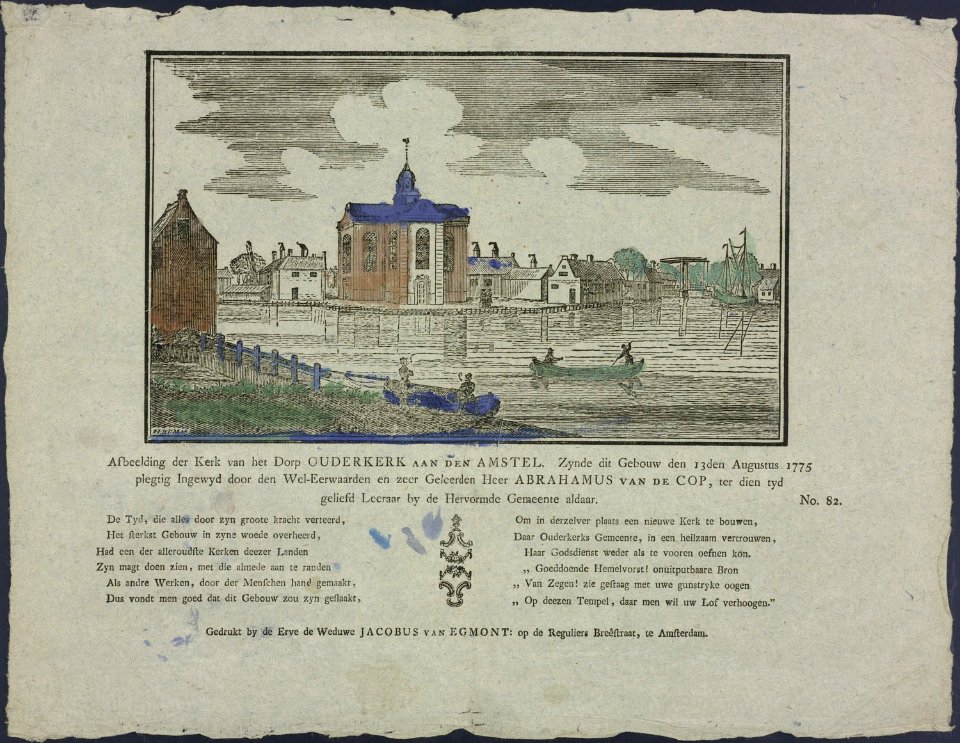 Afbeelding der Kerk van het Dorp OUDERKERK AAN DEN AMSTEL. Zynde dit Gebouw den 13den Augustus 1775
plegtig Ingewyd door den Wel-Eerwaarden en zeer Geleerden Heer ABRAHAMUS VAN DE COP, ter dien tyd
geliefd Leeraar by de Hervormde Gemeente aldaar. No. 82.
De Tyd, die alles door zyn groote kracht verteerd,
Het sterkst Gebouw in zyne woede overheerd,
Had een der alleroudste Kerken deezer Landen
Zyn magt doen zien, met die almede aan te randen
Als andre Werken, door der Menschen hand gemaakt,
Dus vondt men goed dat dit Gebouw zou zyn geslaakt,
Om in derzelver plaats een nieuwe Kerk te bouwen,
Daar Ouderkerks Gemeente, in een heilzaam vertrouwen,
Haar Godsdienst weder als te vooren oefnen kon.
„ Goeddoende Hemelvorst! onuitputbaare Bron
„ Van Zegen! zie gestaag met uwe gunstryke oogen
„ Op deezen Tempel, daar men wil uw Lof verhoogen.”
Gedrukt by de Erve de Weduwe JACOBUS VAN EGMONT: op de Reguliers Breêstraat, te Amsterdam.